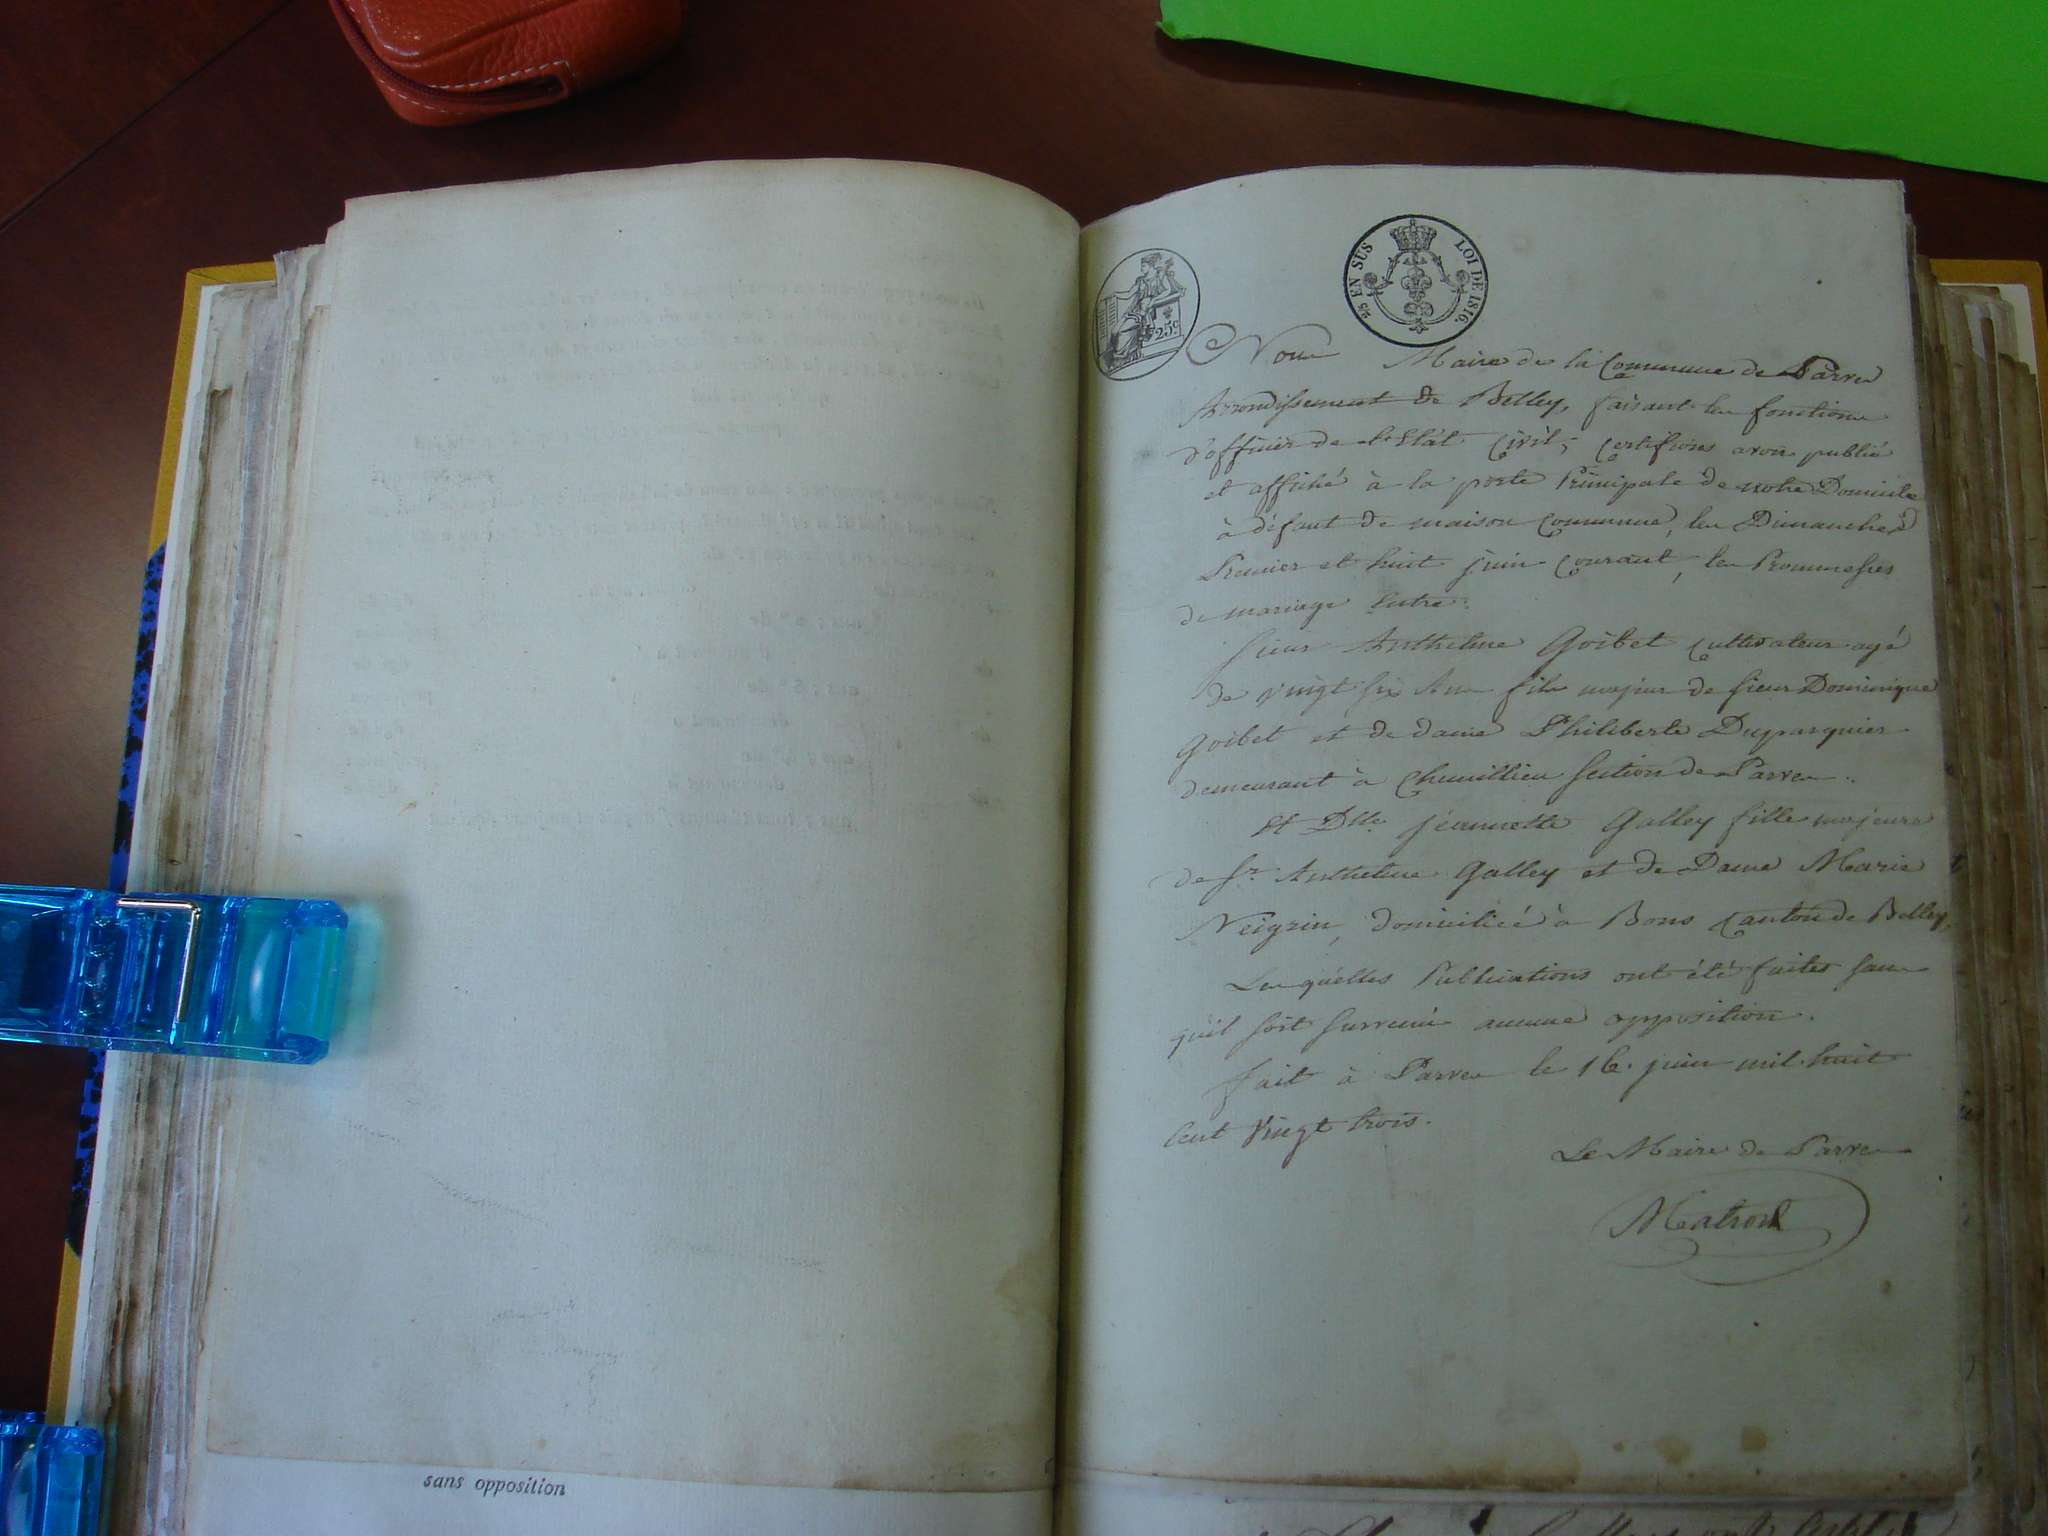 25 EN SUS LOI DE 1816.
25c
Nous Maire de la Commune de Parves
Arrondissement de Belley, faisant les fonctions
d'officier de l'Etat Civil, certifions avoir publié
et affiché à la porte Principale de notre Domicile
à défaut de maison Commune, les Dimanches
Premier et huit juin Courant, les Prommesses
de mariage Entre.
Sieur Anthelme Goibet Cultivateur agé
de vingt six Ans fils majeur de sieur Dominique
Goibet et de dame Philiberte Duparquier
demeurant à Chemillieu section de Parves.
Et Dlle Jeannette Galley fille majeure
de Sr Anthelme Galley et de Dame Marie
Neigrin, domiciliée à Bons Canton de Belley,
Les quelles Publications ont été faites sans
qu'il soit survenu aucune opposition.
fait à Parves le 16. juin mil huit
Cent Vingt trois.
Le Maire de Parves
sans opposition